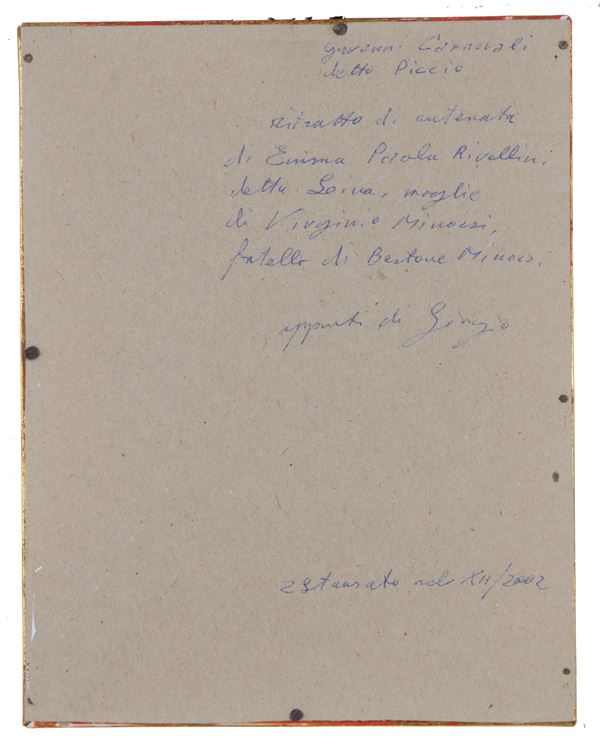 Giovanni Carnovali
detto Piccio
ritratto di antenata
di Emma Paola Rivellini
detta, moglie
di Virginio Minozzi,
fratello di Bertone Minozzi
appunti di Giorgio
restaurato nel XII/2002